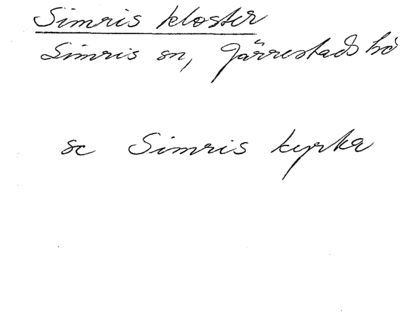 Simris kloster
Simris sn, Järrestads hd
se Simris kyrka